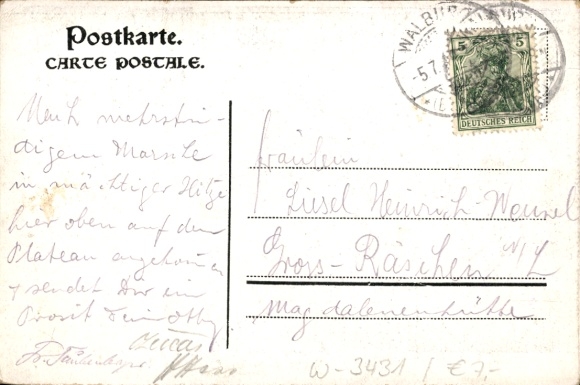 Postkarte.
CARTE POSTALE.
WALBUR
5.7.
5 5
DEUTSCHES REICH
Nach mehrstün-
digem Marsche
in mächtiger Hitze
hier oben auf dem
Plateau angekommen
sendet Dir ein
Prosit
Fräulein
Liesel Heinrich-Wenzel
Gross-Räschen N/L
Magdalenenhütte
W-3431 / € 7,-